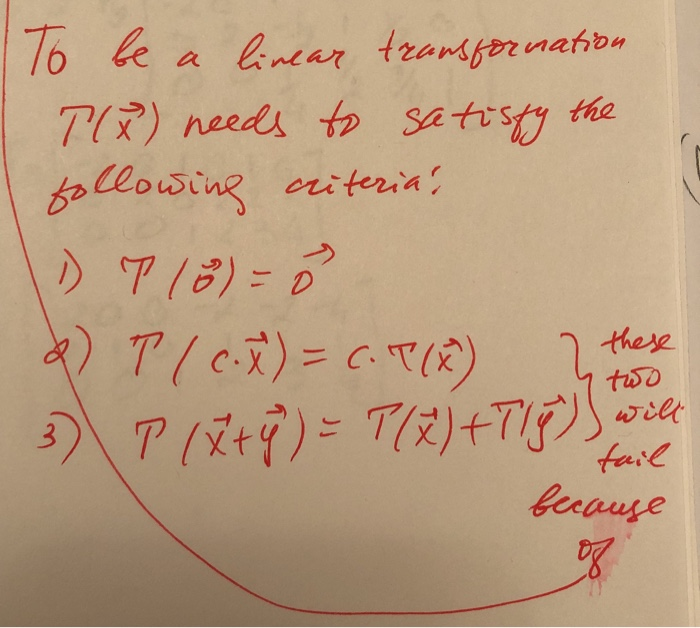 To be a linear transformation
T(x⃗) needs to satisfy the
following criteria:
1) T(0⃗) = 0⃗
2) T(c·x⃗) = c·T(x⃗)
3) T(x⃗+y⃗) = T(x⃗)+T(y⃗)
} these
two
will
fail
because
of